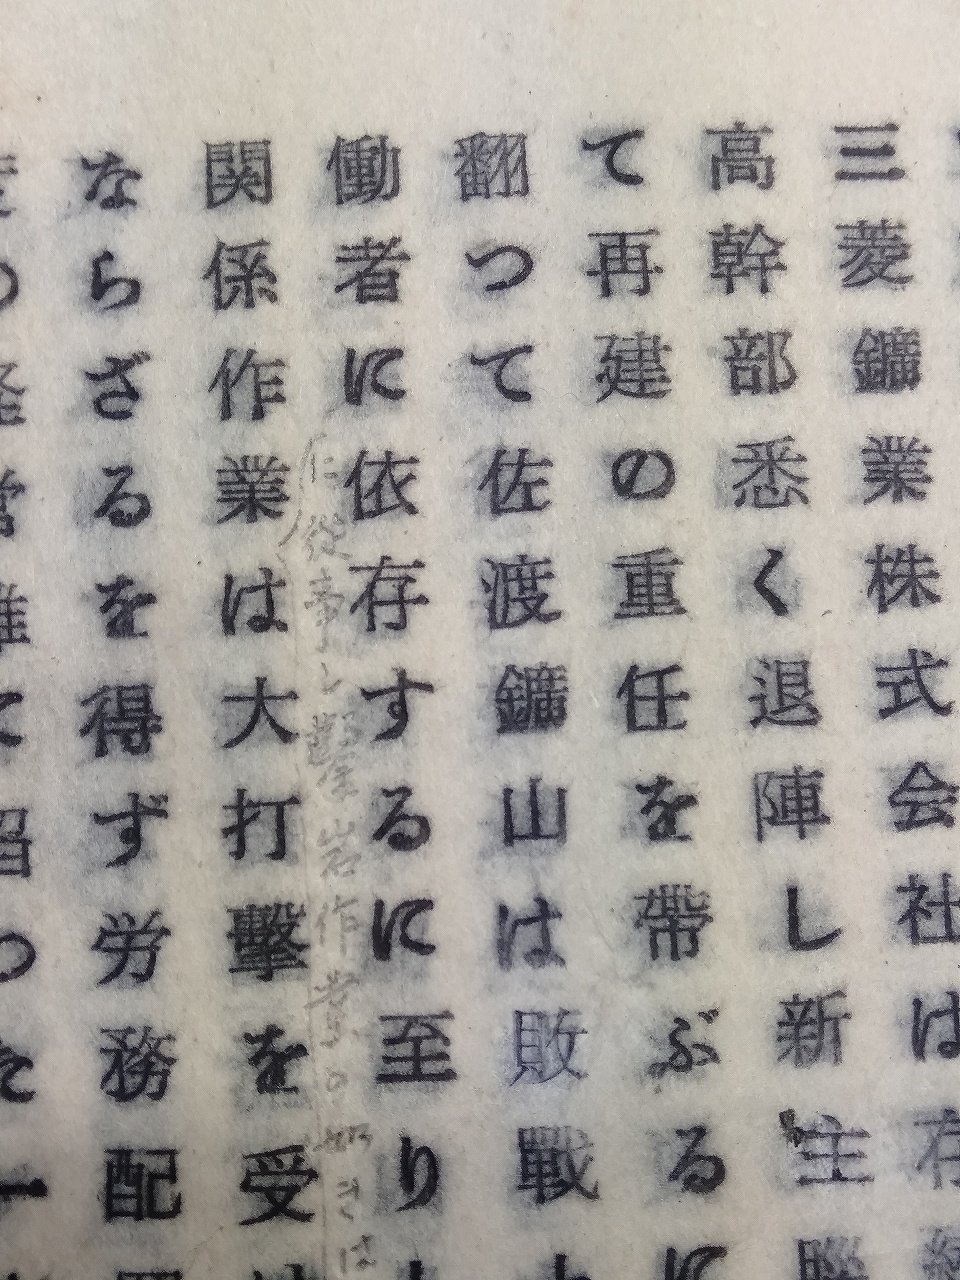 三菱鑛業株式会社は存
高幹部悉く退陣し新主腦
て再建の重任を帶ぶるに
翻つて佐渡鑛山は敗戰
働者に依存するに至り
に從事し鑿岩作業の如きは
関係作業は大打擊を受け
ならざるを得ず労務配置